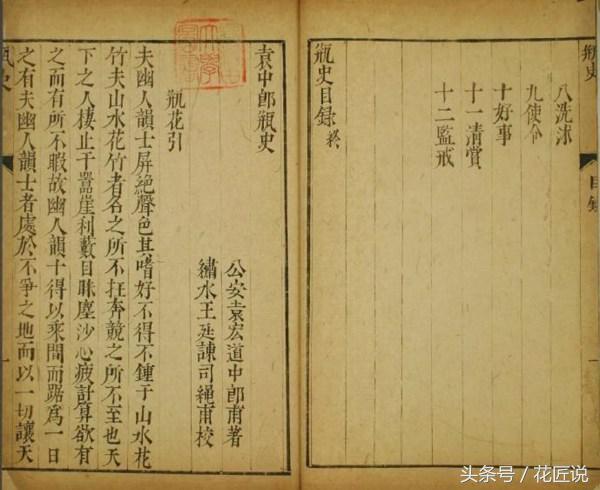 瓶史
目録
八洗沐
九使令
十好事
十一清賞
十二監戒
瓶史目録終
袁中郎瓶史
公安袁宏道中郎甫著
繡水王廷諫司繩甫校
瓶花引
夫幽人韻士屏絶聲色其嗜好不得不鍾于山水花
竹夫山水花竹者名之所不在奔競之所不至也天
下之人棲止于囂崖利藪目眯塵沙心疲計算欲有
之而有所不暇故幽人韻士得以乘間而踞爲一日
之有夫幽人韻士者處於不爭之地而以一切讓天
瓶史
头条号 / 花匠说